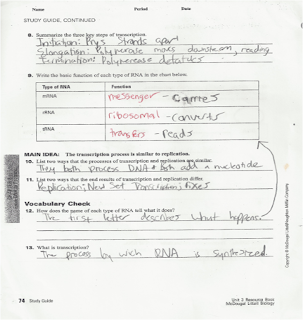 Name Period Date
STUDY GUIDE, CONTINUED
8. Summarize the three key steps of transcription.
Initiation: Prys Strands apart
Elongation: Polymerase moves downstream, reading
Termination: Polymerase detatches
9. Write the basic function of each type of RNA in the chart below.
Type of RNA Function
mRNA messenger - Carries
rRNA ribosomal - Converts
tRNA transfers - Reads
MAIN IDEA: The transcription process is similar to replication.
10. List two ways that the processes of transcription and replication are similar.
They both process DNA + Both add a nucleotide
11. List two ways that the end results of transcription and replication differ.
Replication; New Set Transcription; fixes
Vocabulary Check
12. How does the name of each type of RNA tell what it does?
The first letter describes what happens.
13. What is transcription?
The process by wich RNA is synthesized.
74 Study Guide
Unit 3 Resource Book
McDougal Littell Biology